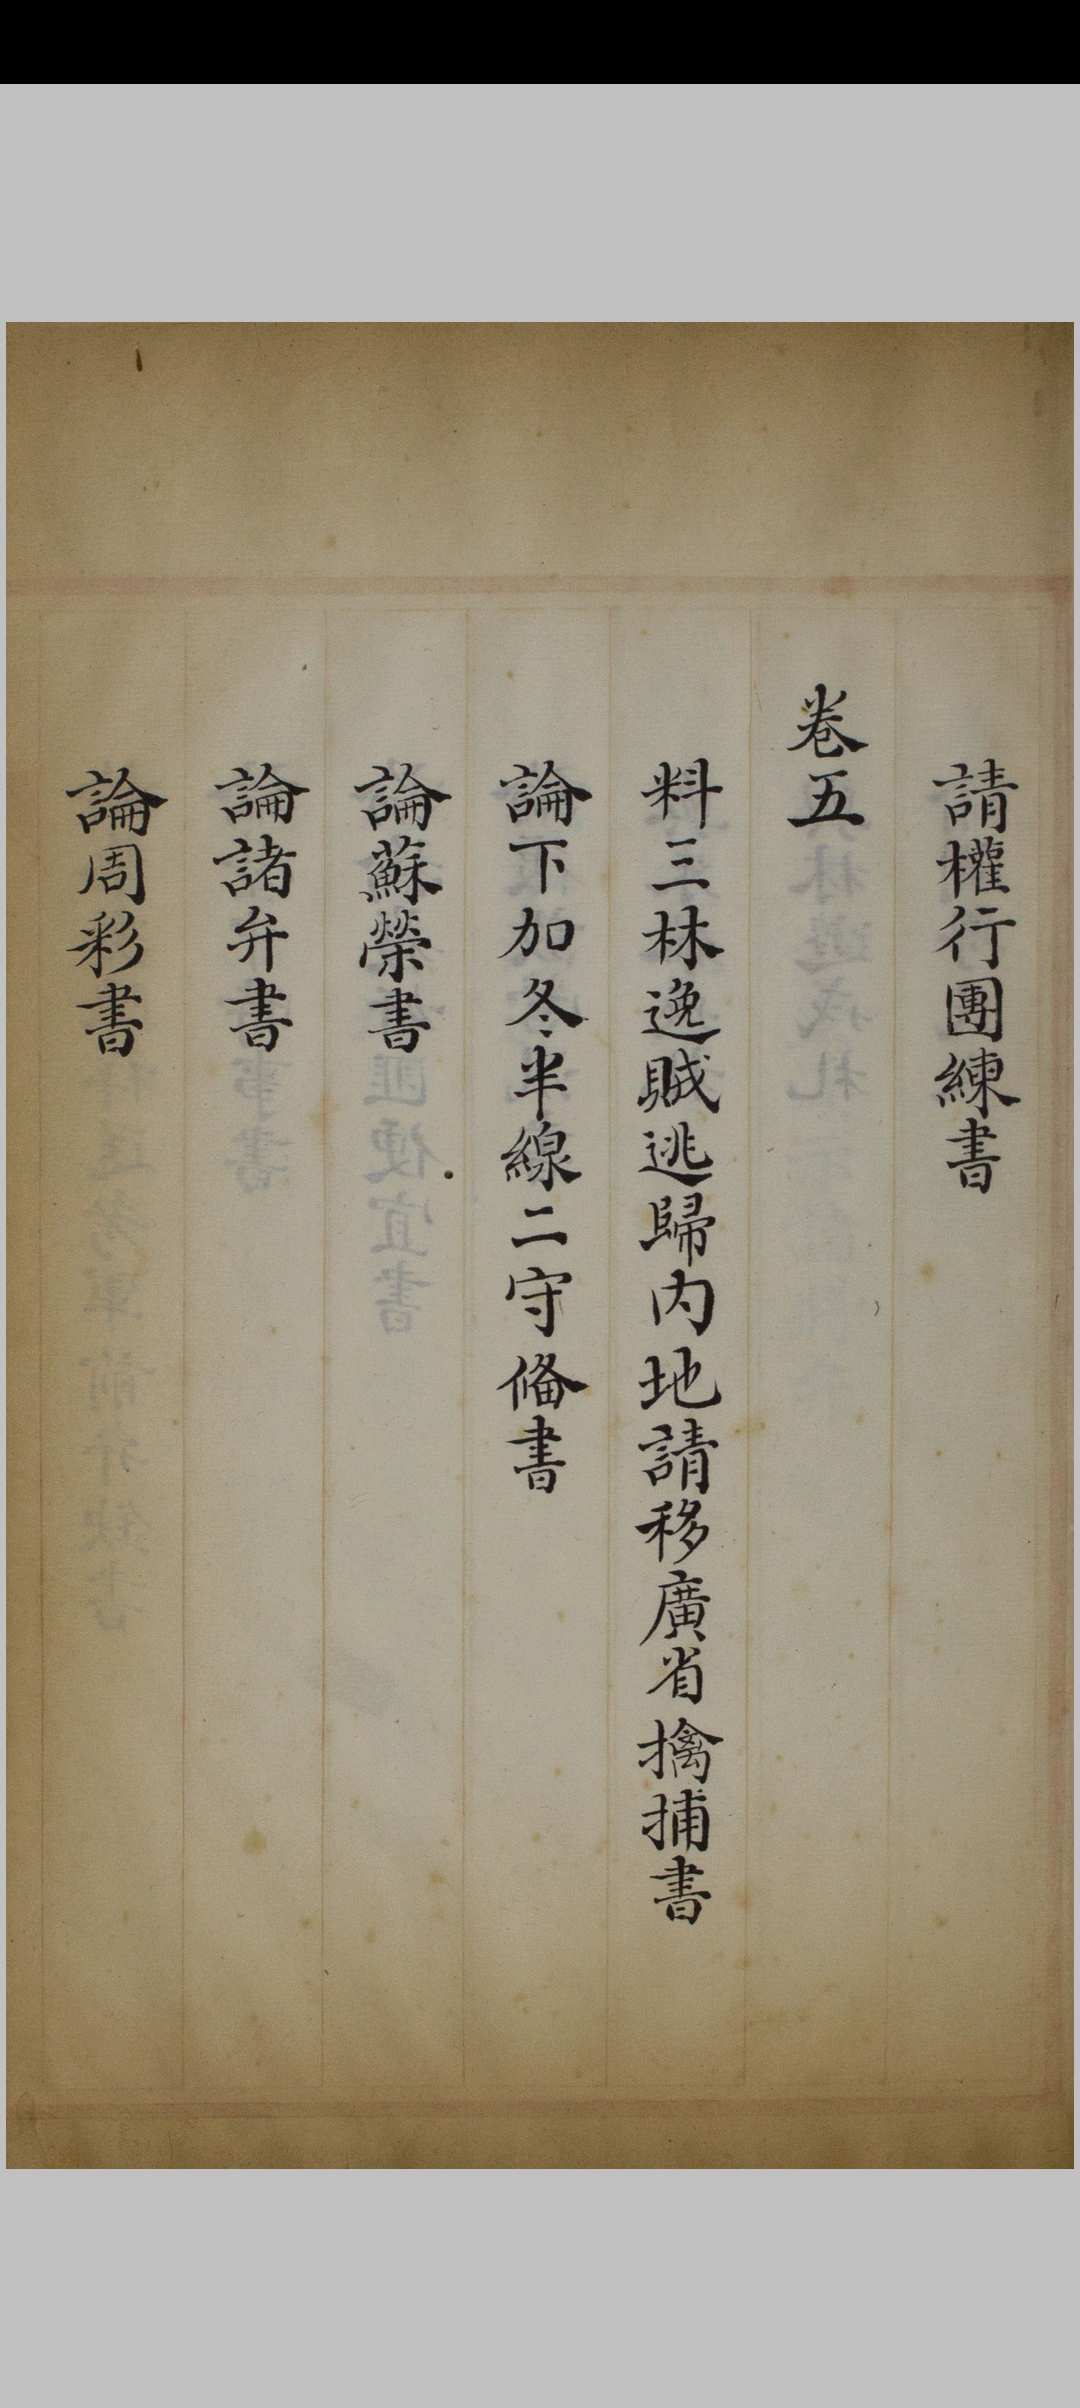 請權行團練書
卷五
料三林逸賊逃歸内地請移廣省擒捕書
論下加冬半線二守俻書
論蘇榮書
論諸弁書
論周彩書